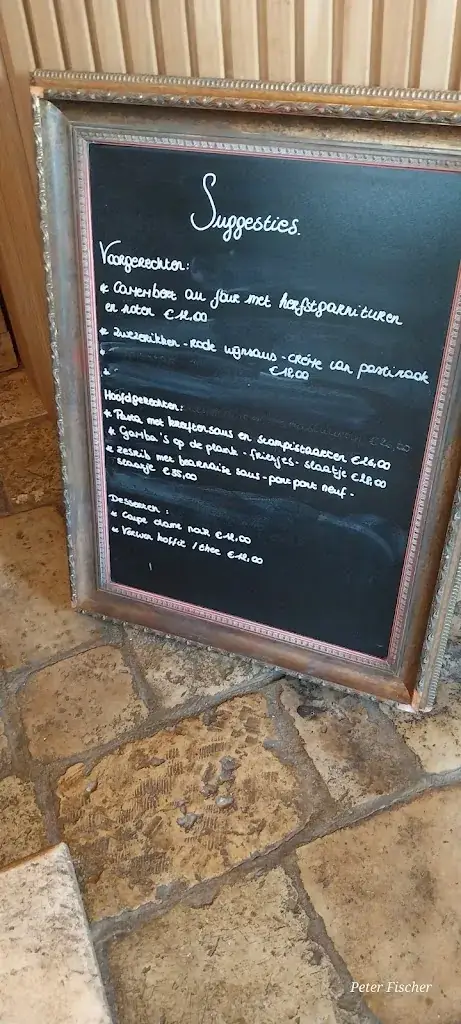 Suggesties.
Voorgerechten:
* Camembert au four met herfstgarnituren
en noten €12,00
* Zwezerikken - rode wijnsaus - crème van pastinaak
*
€18,00
*
Hoofdgerechten:
* Pasta met kreeftensaus en scampistaarten €26,00
* Gamba's op de plank - frietjes - slaatje €28,00
* Zesrib met bearnaise saus - pont neuf -
slaatje €35,00
Desserten:
* Coupe dame noir €12,00
* Verwen koffie / thee €12,00
Peter Fischer